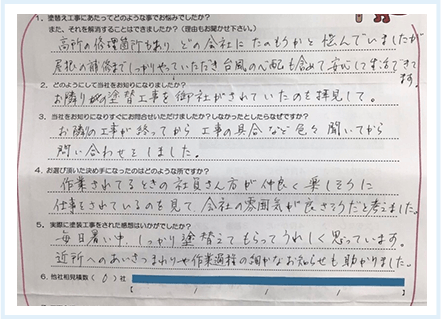 1. 塗替え工事にあたってどのような事でお悩みでしたか?
また、それを解消することはできましたか?（理由もお聞かせ下さい。）
高所の修理箇所もあり どの会社にたのもうかと悩んでいましたが
屋根の補修までしっかりやっていただき台風の心配も含めて安心して生活できて
ます。
2. どのようにして当社をお知りになりましたか?
お隣りが塗替工事を御社がされていたのを拝見して。
3. 当社をお知りになりすぐにお問合せいただけましたか?しなかったとしたらなぜですか?
お隣の工事が終ってから 工事の具合など色々聞いてから
問い合わせをしました。
4. お選び頂いた決め手になったのはどのような所ですか?
作業されてるときの社員さん方が仲良く楽しそうに
仕事をされているのを見て 会社の雰囲気が良さそうだと考えました。
5. 実際に塗装工事をされた感想はいかがでしたか?
毎日暑い中、しっかり塗替えてもらってうれしく思っています。
近所へのあいさつまわりや作業過程の細かなお知らせも助かりました。
6. 他社相見積数（ 0 ）社